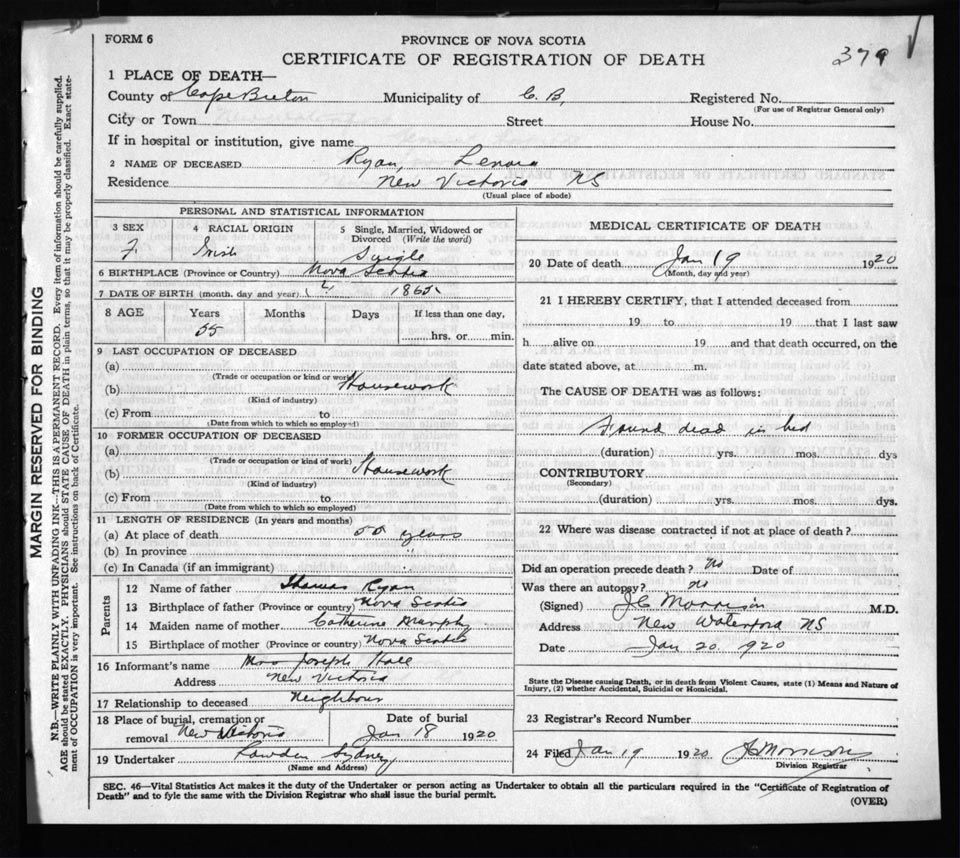 FORM 6
PROVINCE OF NOVA SCOTIA
379
CERTIFICATE OF REGISTRATION OF DEATH
1 PLACE OF DEATH—
County of Cape Breton Municipality of C. B. Registered No.
(For use of Registrar General only)
City or Town Street House No.
If in hospital or institution, give name
2 NAME OF DECEASED Ryan, Lenora
Residence New Victoria NS
(Usual place of abode)
PERSONAL AND STATISTICAL INFORMATION
3 SEX 4 RACIAL ORIGIN 5 Single, Married, Widowed or
Divorced (Write the word)
F Irish Single
6 BIRTHPLACE (Province or Country) Nova Scotia
7 DATE OF BIRTH (month, day and year) ( ? 1865
8 AGE Years Months Days If less than one day,
55 hrs. or min.
9 LAST OCCUPATION OF DECEASED
(a)
(Trade or occupation or kind or work)
(b) Housework
(Kind of industry)
(c) From to
(Date from which to which so employed)
10 FORMER OCCUPATION OF DECEASED
(a)
(Trade or occupation or kind of work)
(b) Housework
(Kind of industry)
(c) From to
(Date from which to which so employed)
11 LENGTH OF RESIDENCE (In years and months)
(a) At place of death 55 years
(b) In province "
(c) In Canada (if an immigrant) "
Parents
12 Name of father Thomas Ryan
13 Birthplace of father (Province or country) Nova Scotia
14 Maiden name of mother Catherine Murphy
15 Birthplace of mother (Province or country) Nova Scotia
16 Informant's name Mrs Joseph Hall
Address New Victoria
17 Relationship to deceased Neighbour
18 Place of burial, cremation or Date of burial
removal New Victoria Jan 18 1920
19 Undertaker Rawden Sydney
(Name and Address)
MEDICAL CERTIFICATE OF DEATH
20 Date of death Jan 19 1920
(Month, day and year)
21 I HEREBY CERTIFY, that I attended deceased from
19 to 19 that I last saw
h alive on 19 and that death occurred, on the
date stated above, at m.
The CAUSE OF DEATH was as follows:
Found dead in bed
(duration) yrs. mos. dys
CONTRIBUTORY
(Secondary)
(duration) yrs. mos. dys.
22 Where was disease contracted if not at place of death?
Did an operation precede death? no Date of
Was there an autopsy? no
(Signed) J C Morrison M.D.
Address New Waterford NS
Date Jan 20 920
State the Disease causing Death, or in death from Violent Causes, state (1) Means and Nature of
Injury, (2) whether Accidental, Suicidal or Homicidal.
23 Registrar's Record Number
24 Filed Jan 19 1920 Morrison
Division Registrar
SEC. 46—Vital Statistics Act makes it the duty of the Undertaker or person acting as Undertaker to obtain all the particulars required in the "Certificate of Registration of
Death" and to fyle the same with the Division Registrar who shall issue the burial permit.
(OVER)
MARGIN RESERVED FOR BINDING
N.B.—WRITE PLAINLY WITH UNFADING INK—THIS IS A PERMANENT RECORD. Every item of information should be carefully supplied.
AGE should be stated EXACTLY. PHYSICIANS should STATE CAUSE OF DEATH in plain terms, so that it may be properly classified. Exact state-
ment of OCCUPATION is very important. See instructions on back of Certificate.